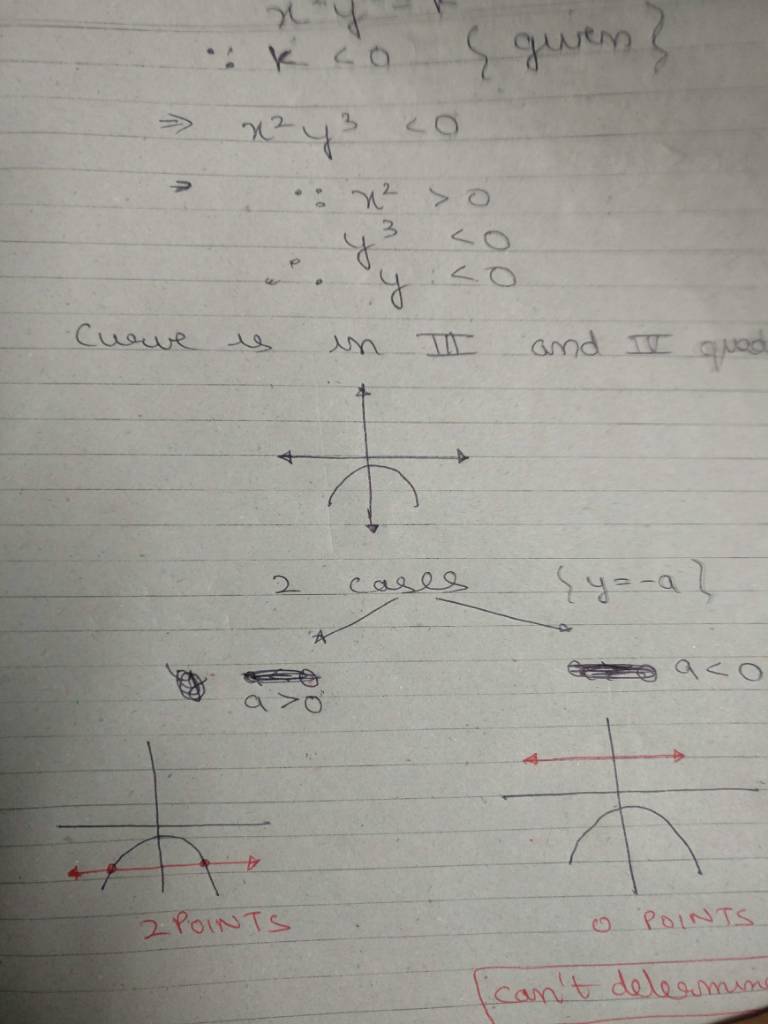 ∵ K < 0 { given }
⇒ x² y³ < 0
⇒ ∵ x² > 0
y³ < 0
∴ y < 0
Curve is in III and IV quad
2 cases { y = -a }
a > 0
a < 0
2 POINTS
0 POINTS
can't determine